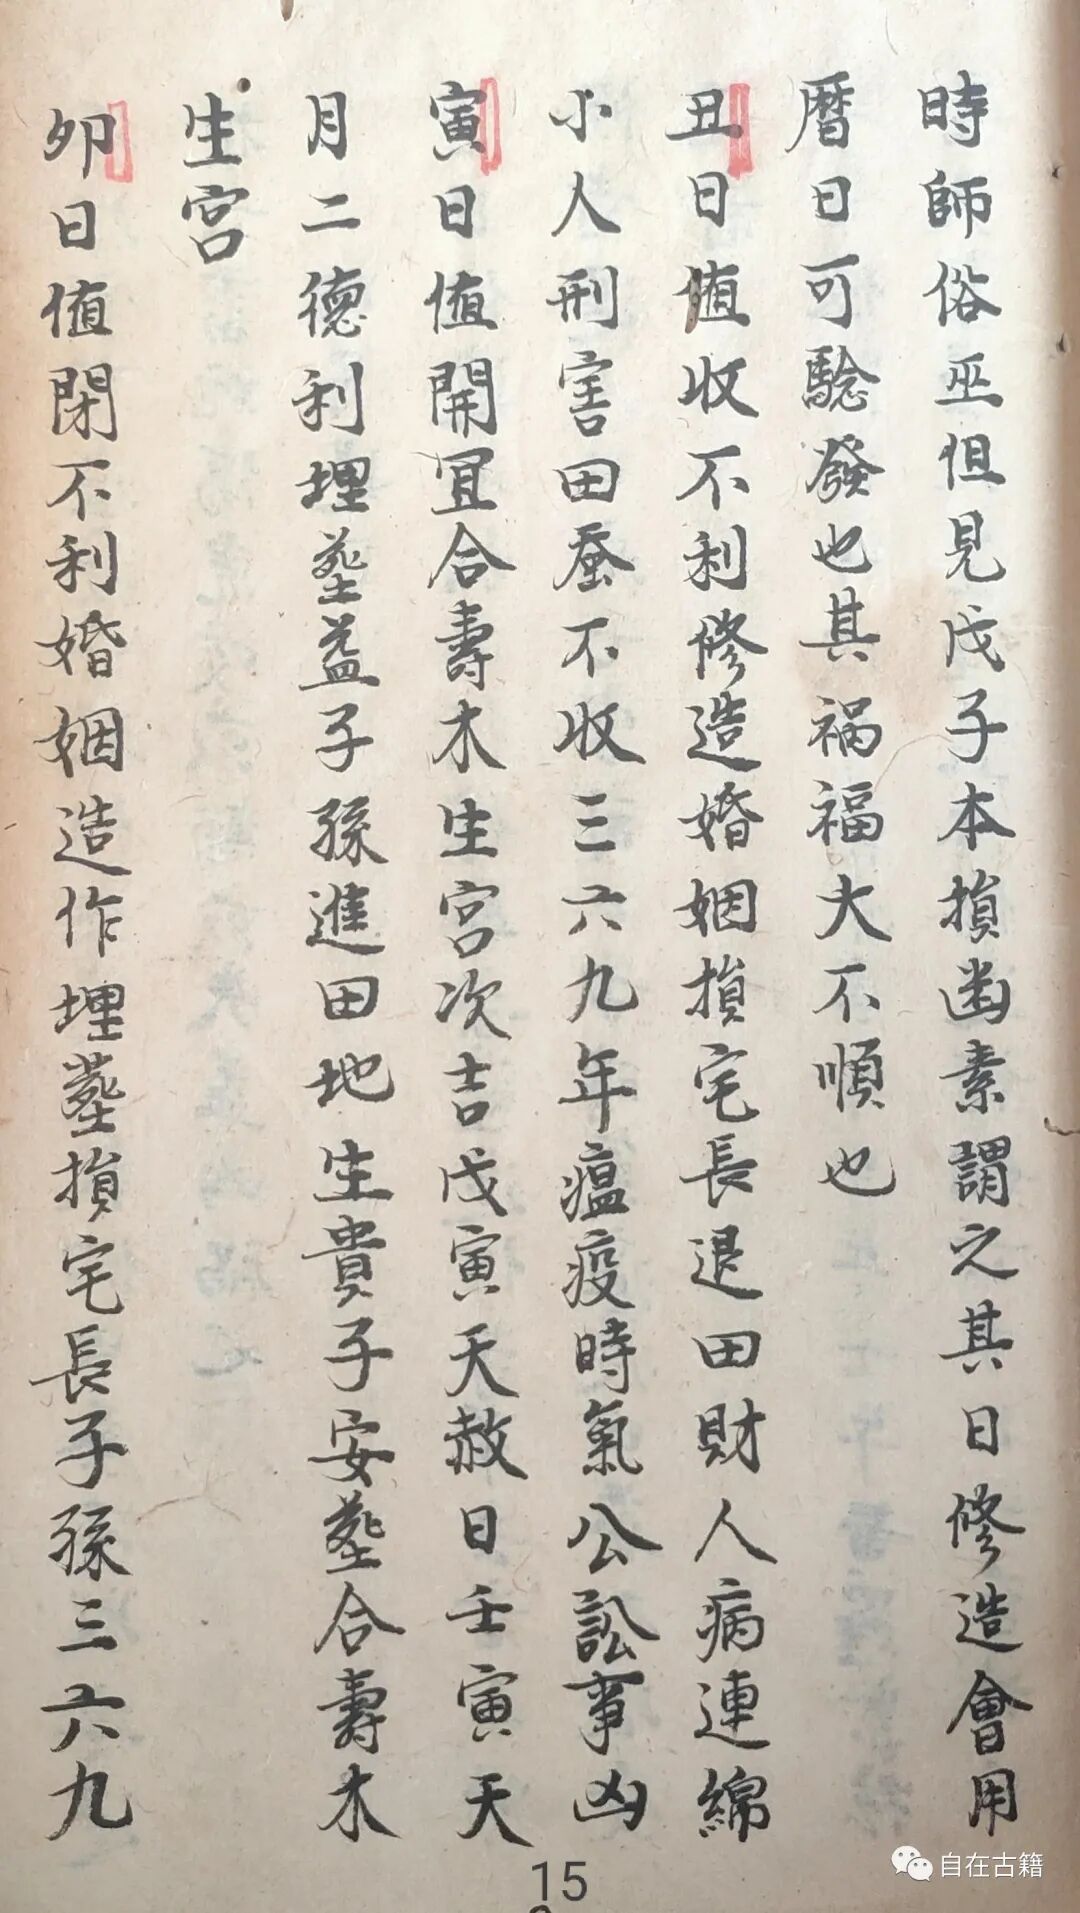 時師俗巫但見戊子本損凼素謂之其日修造會用
曆日可騐發也其禍福大不順也
丑日值收不利修造婚姻損宅長退田財人病連綿
小人刑害田蚕不收三六九年瘟疫時氣公訟事凶
寅日值開宜合壽木生宮次吉戊寅天赦日壬寅天
月二德利埋塟益子孫進田地生貴子安塟合壽木
生宮
夘日值閉不利婚姻造作埋塟損宅長子孫三六九
15
自在古籍